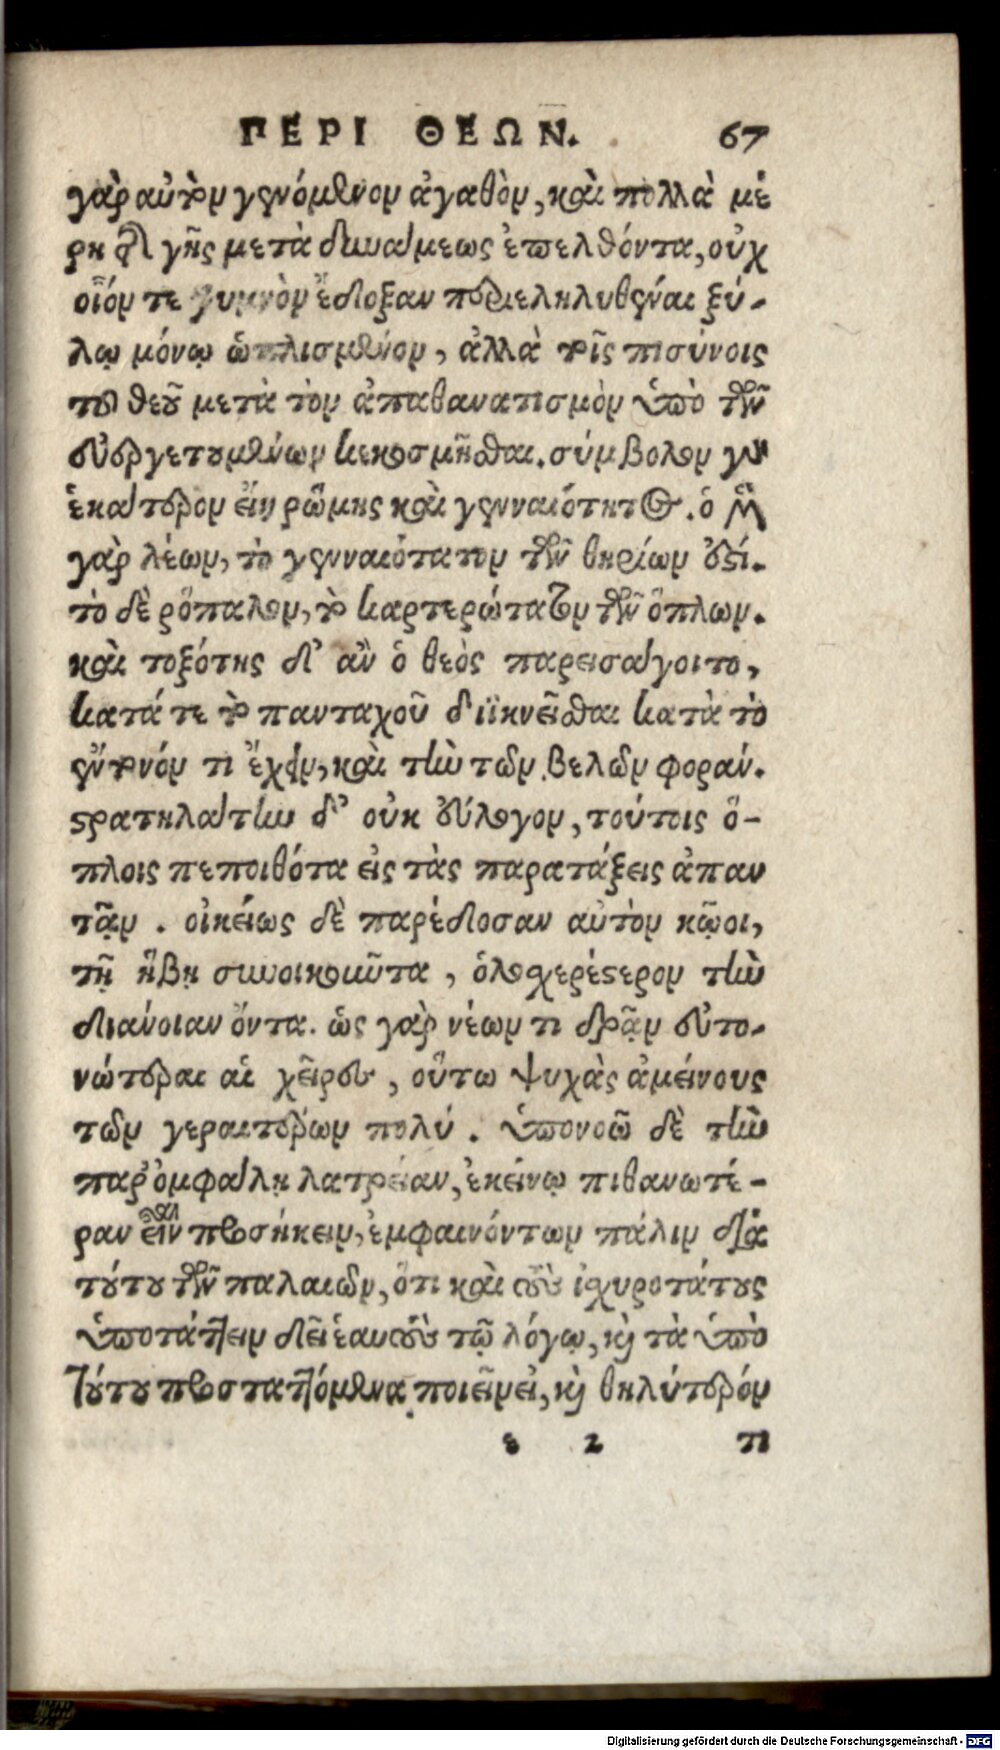 ΠΕΡΙ ΘΕΩΝ. 67
γὰρ αὐτὸν γενόμενον ἀγαθὸν, καὶ πολλὰ μέ
ρη τῆς γῆς μετὰ δυνάμεως ἐπελθόντα, οὐχ
οἷόν τε γυμνὸν ἔδοξαν περιεληλυθέναι ξύ-
λῳ μόνῳ ὡπλισμένον, ἀλλὰ τοῖς πισύνοις
τοῦ θεοῦ μετὰ τὸν ἀπαθανατισμὸν ὑπὸ τῶν
εὐεργετουμένων κεκοσμῆσθαι. σύμβολον γὰρ
ἑκάτερον εἴη ῥώμης καὶ γενναιότητος. ὁ μὲν
γὰρ λέων, τὸ γενναιότατον τῶν θηρίων ἐστί.
τὸ δὲ ῥόπαλον, τὸ καρτερώτατον τῶν ὅπλων.
καὶ τοξότης δ' ἂν ὁ θεὸς παρεισάγοιτο,
κατά τε τὸ πανταχοῦ διϊκνεῖσθαι κατὰ τὸ
ἔντονόν τι ἔχειν, καὶ τὴν τῶν βελῶν φοράν.
στρατηλάτην δ' οὐκ εὔλογον, τούτοις ὅ-
πλοις πεποιθότα εἰς τὰς παρατάξεις ἀπαν
τᾷν. οἰκείως δὲ παρέδοσαν αὐτὸν κῷοι,
τῇ ἥβῃ συνοικοῦντα, ὁλοσχερέστερον τὴν
διάνοιαν ὄντα. ὡς γὰρ νέων τι δρᾷν εὐτο-
νώτεραι αἱ χεῖρες, οὕτω ψυχὰς ἀμείνους
τῶν γεραιτέρων πολύ. ὑπονοῶ δὲ τὴν
παρ' ὀμφάλῃ λατρείαν, ἐκείνῳ πιθανωτέ-
ραν εἶναι προσήκειν, ἐμφαινόντων πάλιν διὰ
τούτου τῶν παλαιῶν, ὅτι καὶ τοὺς ἰσχυροτάτους
ὑποτάττειν δεῖ ἑαυτοὺς τῷ λόγῳ, καὶ τὰ ὑπὸ
τούτου προσταττόμενα ποιεῖν εἰ, καὶ θηλύτερόν
ε 2 τι
Digitalisierung gefördert durch die Deutsche Forschungsgemeinschaft - DFG